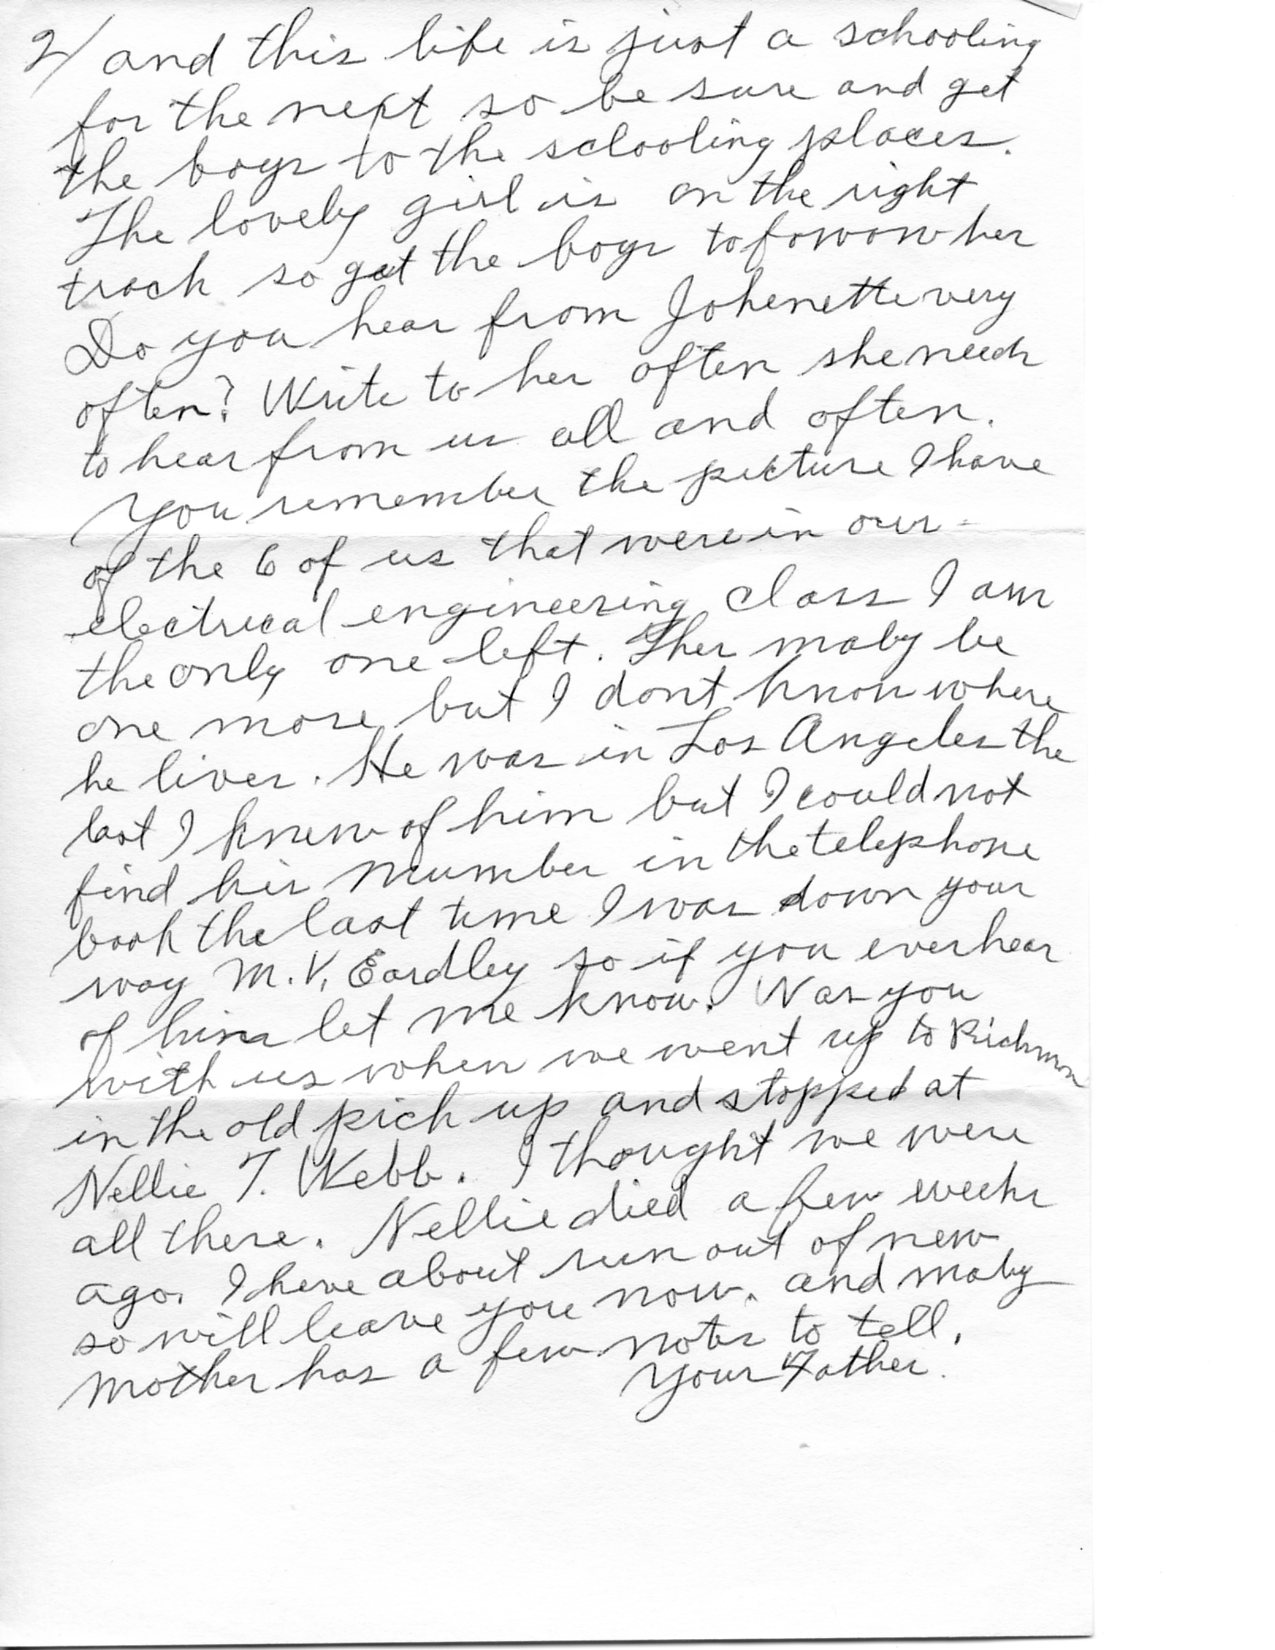 2/ and this life is just a schooling
for the next so be sure and get
the boys to the schooling places.
The lovely girl is on the right
track so get the boys to fowow her
Do you hear from Johenette very
often? Write to her often she needs
to hear from us all and often.
You remember the picture I have
of the 6 of us that were in our
electrical engineering class I am
the only one left. Ther maby be
one more but I dont know where
he lives. He was in Los Angeles the
last I knew of him but I could not
find his number in the telephone
book the last time I was down your
way M.V. Eardley so if you ever hear
of him let me know. Was you
with us when we went up to Richmon
in the old pick up and stopped at
Nellie T. Webb. I thought we were
all there. Nellie died a few weeks
ago. I have about run out of new
so will leave you now. and maby
Mother has a few notes to tell.
Your Father.